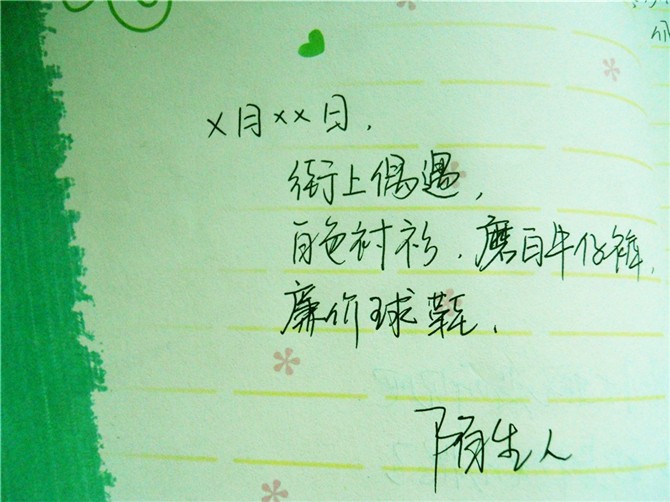 ×月××日,
街上偶遇,
白色衬衫、磨白牛仔裤、
廉价球鞋、
陌生人